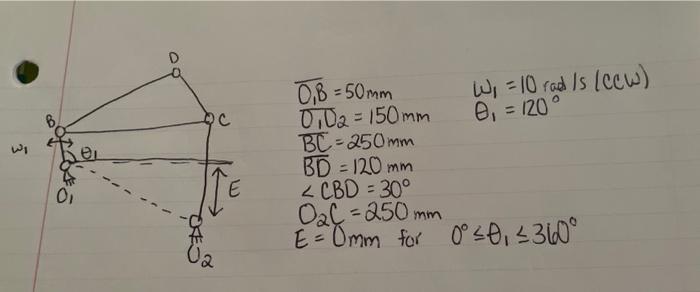 D
B
C
ω₁
θ₁
O₁
E
O₂
O₁B = 50mm
O₁O₂ = 150mm
BC = 250mm
BD = 120 mm
∠CBD = 30°
O₂C = 250 mm
E = 0mm for 0° ≤ θ₁ ≤ 360°
ω₁ = 10 rad/s (CCW)
θ₁ = 120°